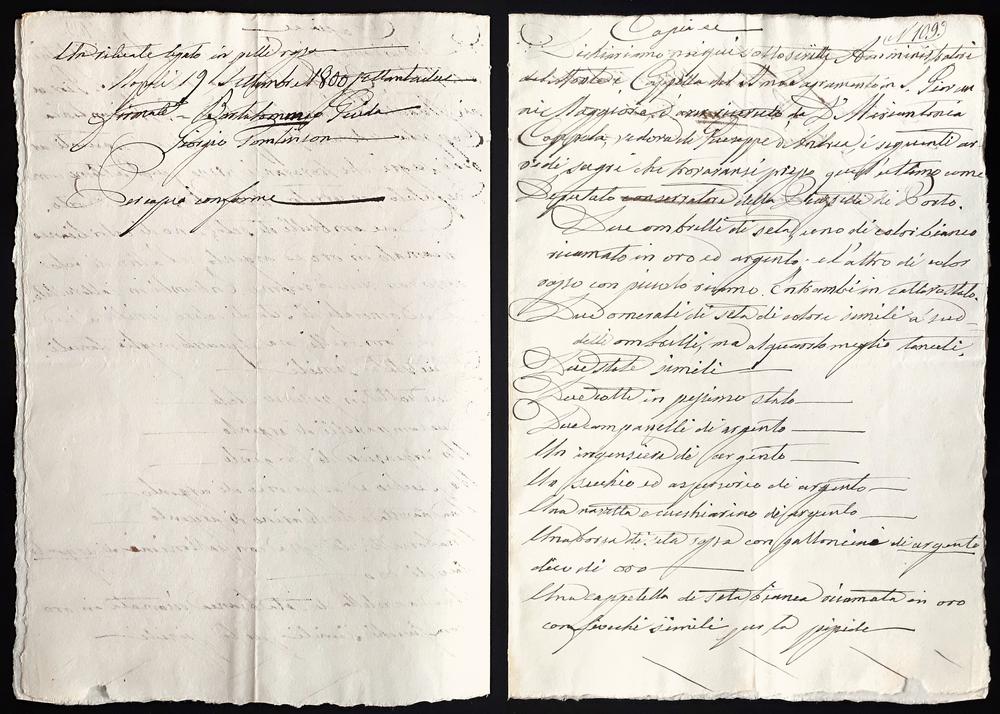 Un rituale legato in pelle rossa
Napoli 19 Settembre 1800 settantadue
Firmati - Bartolommeo Guida
Giorgio Tomlinson
Per copia conforme
Copia se
N 1093
Dichiariamo noi qui sottoscritti Amministratori
del Monte e Cappella del SS.mo Sacramento in S. Giovan
ni Maggiore, d aver ricevuto da D.a Mariantonia
Coppola, vedova di Giuseppe d'Andrea i seguenti ar
redi sagri che trovavansi presso quest'ultimo come
Deputato conservatore della Congrega di Porto.
Due ombrelli di seta, uno di color bianco
ricamato in oro ed argento e l'altro di color
rosso con piccolo ricamo. Entrambi in cattivo stato.
Due omerali di seta di colore simili a' sud-
detti ombrelli, ma alquanto meglio tenuti.
Due stole simili
Due cotte in pessimo stato
Due campanelli di argento
Un incensiere di argento
Un secchio ed aspersorio di argento
Una navetta e cucchiarino di argento
Una borsa di seta rossa con galloncino di argento
dico di oro
Una cappetella di seta bianca ricamata in oro
con fiocchi simili per la pisside